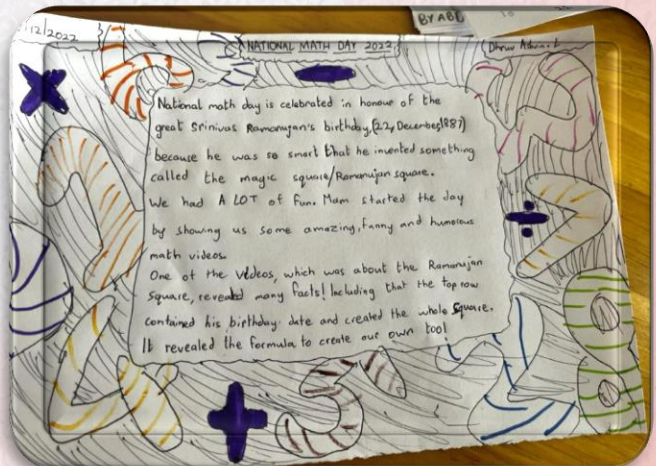 /12/2022
NATIONAL MATH DAY 2022
BY ABC
National math day is celebrated in honour of the
great Srinivas Ramanujan's birthday,(22, December,1887)
because he was so smart that he invented something
called the magic square/Ramanujan square.
We had A LOT of fun. Mam started the day
by showing us some amazing, funny and humorous
math videos.
One of the videos, which was about the Ramanujan
square, revealed many facts! Including that the top row
contained his birthday date and created the whole square.
It revealed the formula to create our own too!